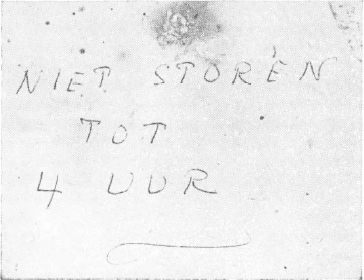 NIET STOREN
TOT
4 UUR